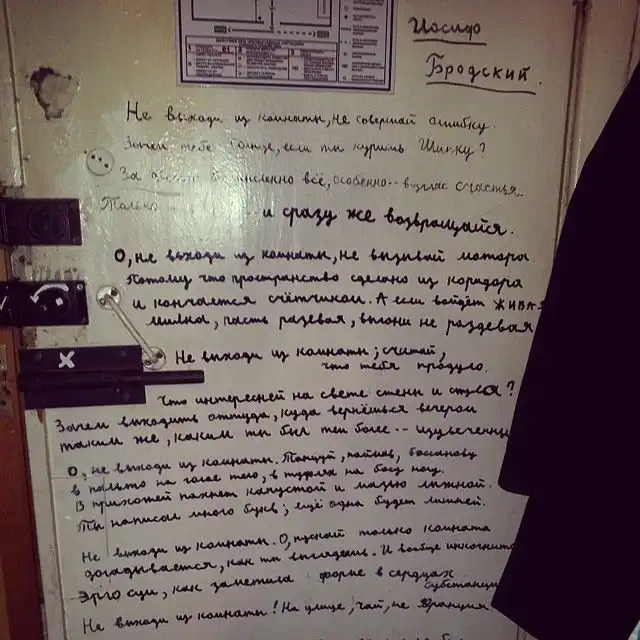 Иосиф
Бродский.
Не выходи из комнаты, не совершай ошибку.
Зачем тебе Солнце, если ты куришь Шипку?
За дверью бессмысленно всё, особенно -- возглас счастья.
Только и сразу же возвращайся.
О, не выходи из комнаты, не вызывай мотора.
Потому что пространство сделано из коридора
и кончается счётчиком. А если войдёт живая
милка, пасть разевая, выгони не раздевая
Не выходи из комнаты; считай,
что тебя продуло.
Что интересней на свете стены и стула?
Зачем выходить оттуда, куда вернёшься вечером
таким же, каким ты был тем более -- изувеченным
О, не выходи из комнаты. Танцуй, поймав, боссанову
в пальто на голое тело, в туфлях на босу ногу.
В прихожей пахнет капустой и мазью лыжной.
Ты написал много букв; ещё одна будет лишней.
Не выходи из комнаты. О, пускай только комната
догадывается, как ты выглядишь. И вообще инкогнито
эрго сум, как заметила форме в сердцах
субстанция
Не выходи из комнаты! На улице, чай, не Франция